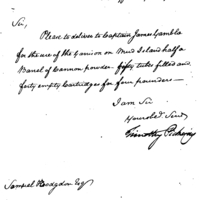 Sir,
Please to deliver to Captain James Gamble
for the use of the Garrison on Mud Island half a
Barrel of Cannon powder. fifty tubes filled and
forty empty Cartridges for four pounders—
I am Sir
Your obed. Serv.
Timothy Pickering
Samuel Hodgdon Esq